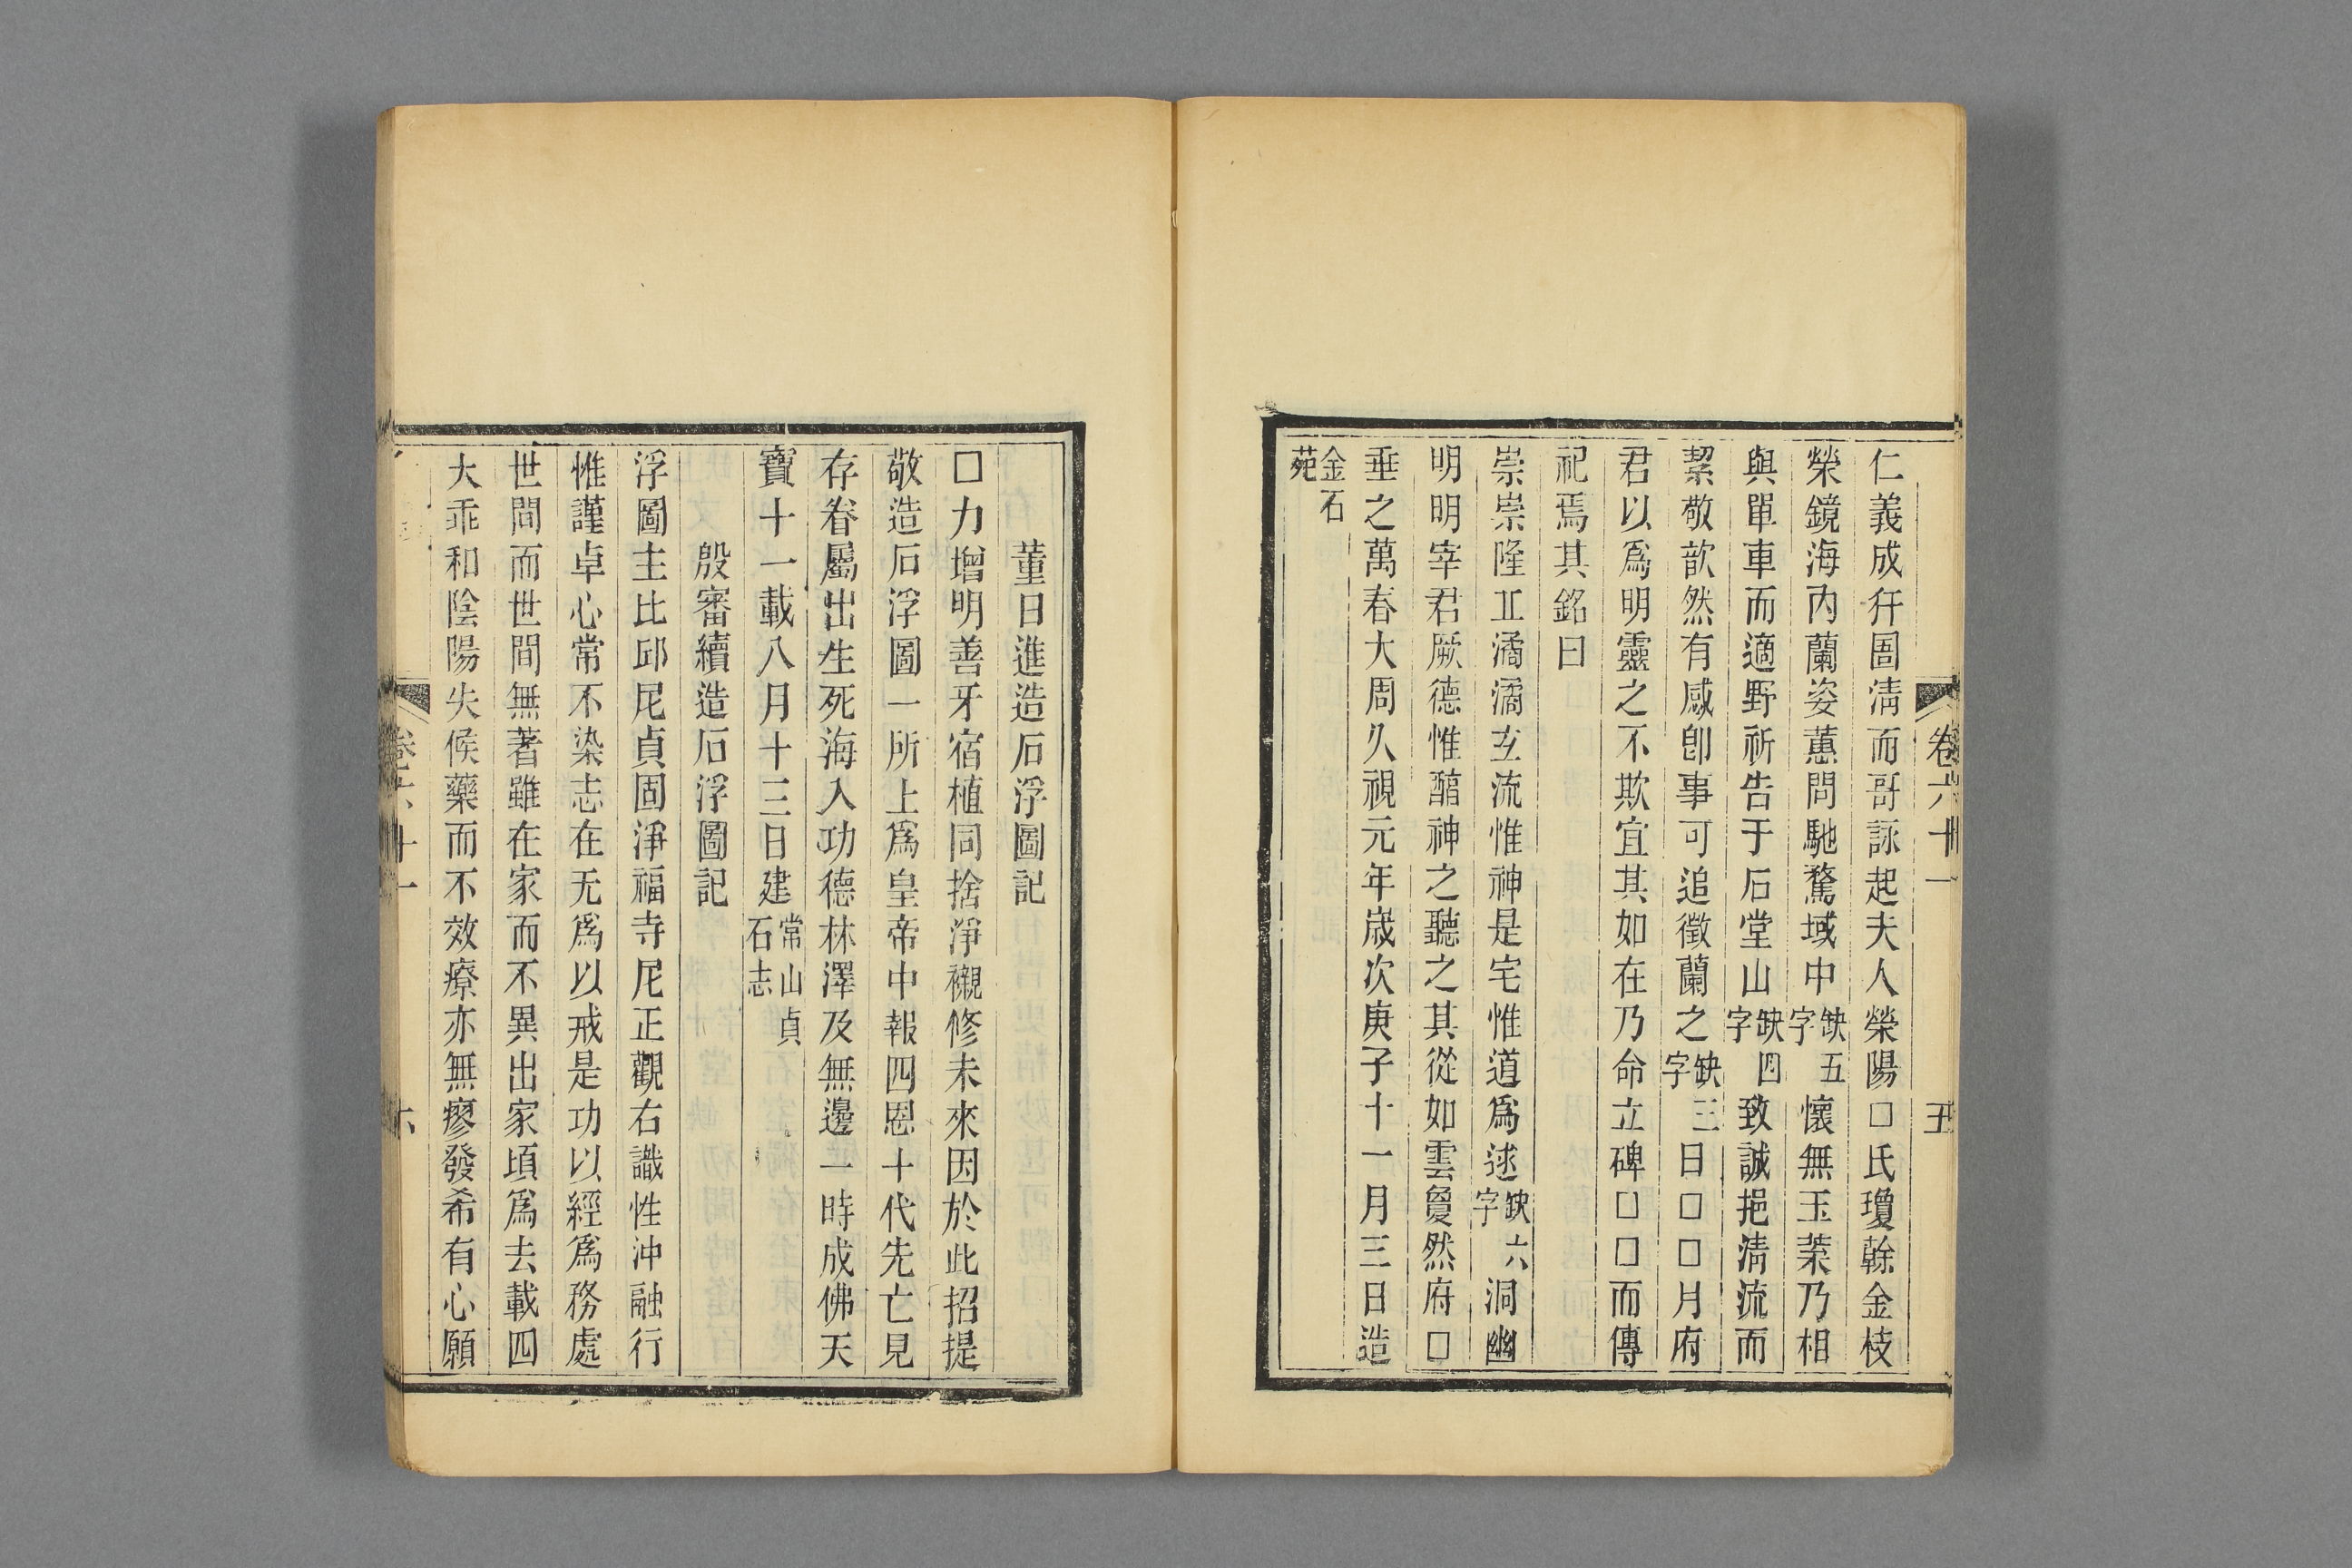 卷六十一 五
仁義成犴圄淸而哥詠起夫人榮陽□氏瓊榦金枝
榮鏡海內蘭姿蕙問馳騖域中缺五字懷無玉葇乃相
與單車而適野祈告于石堂山缺四字致誠挹淸流而
絜敬歆然有感卽事可追徵蘭之缺三字日□□月府
君以爲明靈之不欺宜其如在乃命立碑□□而傳
祀焉其銘曰
崇崇隆㐀潏潏玄流惟神是宅惟道爲逑缺六字洞幽
明明宰君厥德惟䤈神之聽之其從如雲敻然府□
垂之萬春大周久視元年歲次庚子十一月三日造
金石苑
董日進造石浮圖記
□力增明善牙宿植同捨淨襯修未來因於此招提
敬造石浮圖一所上爲皇帝中報四恩十代先亡見
存眷屬出生死海入功德林澤及無邊一時成佛天
寶十一載八月十三日建常山貞石志
殷審續造石浮圖記
浮圖主比邱尼貞固淨福寺尼正觀右識性沖融行
惟謹卓心常不染志在无爲以戒是功以經爲務處
世間而世間無著雖在家而不異出家頃爲去載四
大乖和陰陽失候藥而不效療亦無瘳發希有心願
卷六十一 六